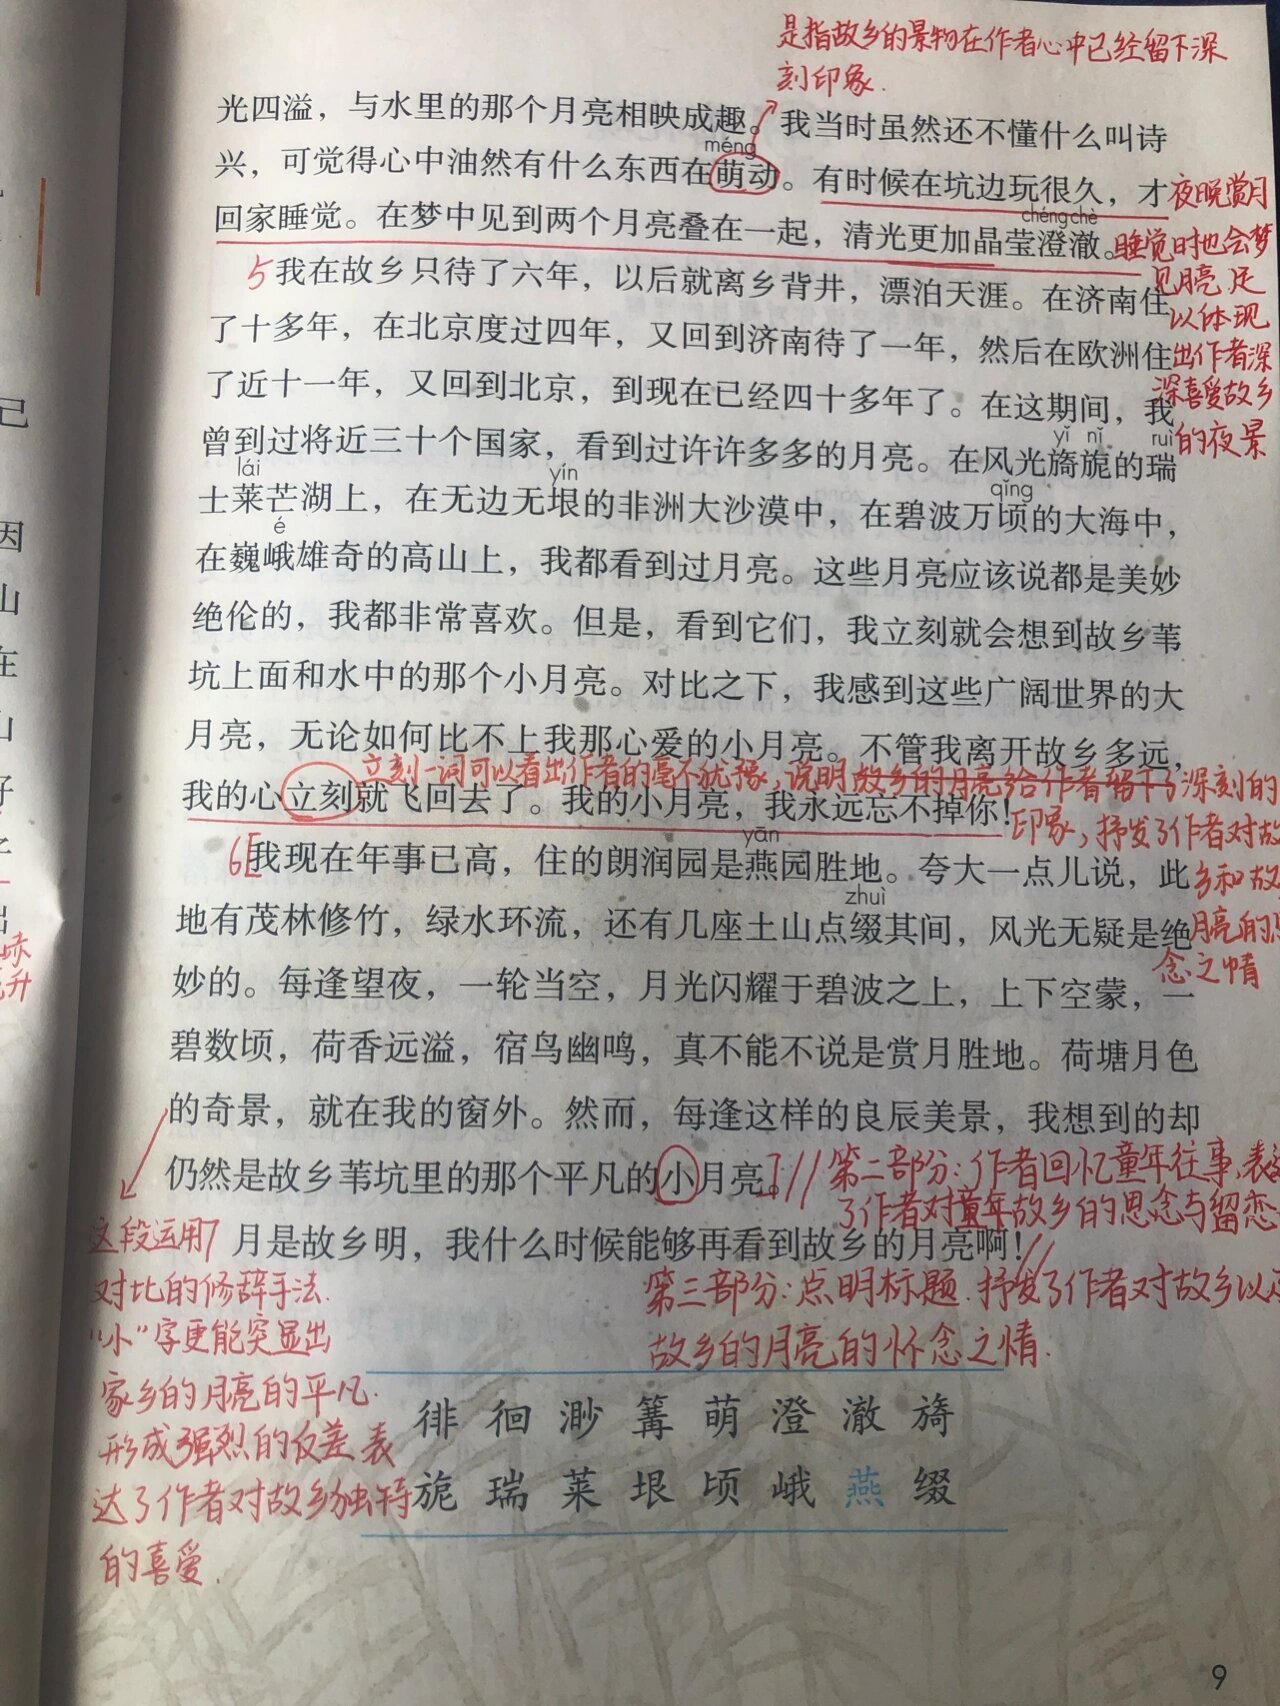 是指故乡的景物在作者心中已经留下深
刻印象.
光四溢，与水里的那个月亮相映成趣。我当时虽然还不懂什么叫诗
méng
兴，可觉得心中油然有什么东西在萌动。有时候在坑边玩很久，才
chéng chè
回家睡觉。在梦中见到两个月亮叠在一起，清光更加晶莹澄澈。
夜晚赏月
睡觉时也会梦
见月亮,足
以体现
出作者深
深喜爱故乡
的夜景
5我在故乡只待了六年，以后就离乡背井，漂泊天涯。在济南住
了十多年，在北京度过四年，又回到济南待了一年，然后在欧洲住
了近十一年，又回到北京，到现在已经四十多年了。在这期间，我
曾到过将近三十个国家，看到过许许多多的月亮。在风光旖旎的瑞
yǐ nǐ ruì
lái yín qǐng
士莱芒湖上，在无边无垠的非洲大沙漠中，在碧波万顷的大海中，
é
在巍峨雄奇的高山上，我都看到过月亮。这些月亮应该说都是美妙
绝伦的，我都非常喜欢。但是，看到它们，我立刻就会想到故乡苇
坑上面和水中的那个小月亮。对比之下，我感到这些广阔世界的大
月亮，无论如何比不上我那心爱的小月亮。不管我离开故乡多远，
我的心立刻就飞回去了。我的小月亮，我永远忘不掉你！
立刻一词可以看出作者的毫不犹豫，说明故乡的月亮给作者留下了深刻的
印象，抒发了作者对故
乡和故
月亮的
念之情
yān
6我现在年事已高，住的朗润园是燕园胜地。夸大一点儿说，此
zhuì
地有茂林修竹，绿水环流，还有几座土山点缀其间，风光无疑是绝
妙的。每逢望夜，一轮当空，月光闪耀于碧波之上，上下空蒙，一
碧数顷，荷香远溢，宿鸟幽鸣，真不能不说是赏月胜地。荷塘月色
的奇景，就在我的窗外。然而，每逢这样的良辰美景，我想到的却
仍然是故乡苇坑里的那个平凡的小月亮。
第二部分：作者回忆童年往事，表
了作者对童年故乡的思念与留恋
7 月是故乡明，我什么时候能够再看到故乡的月亮啊！
第三部分：点明标题.抒发了作者对故乡以
故乡的月亮的怀念之情.
这段运用
对比的修辞手法.
“小”字更能突显出
家乡的月亮的平凡.
形成强烈的反差表
达了作者对故乡独特
的喜爱.
徘 徊 渺 篝 萌 澄 澈 旖
旎 瑞 莱 垠 顷 峨 燕 缀
9